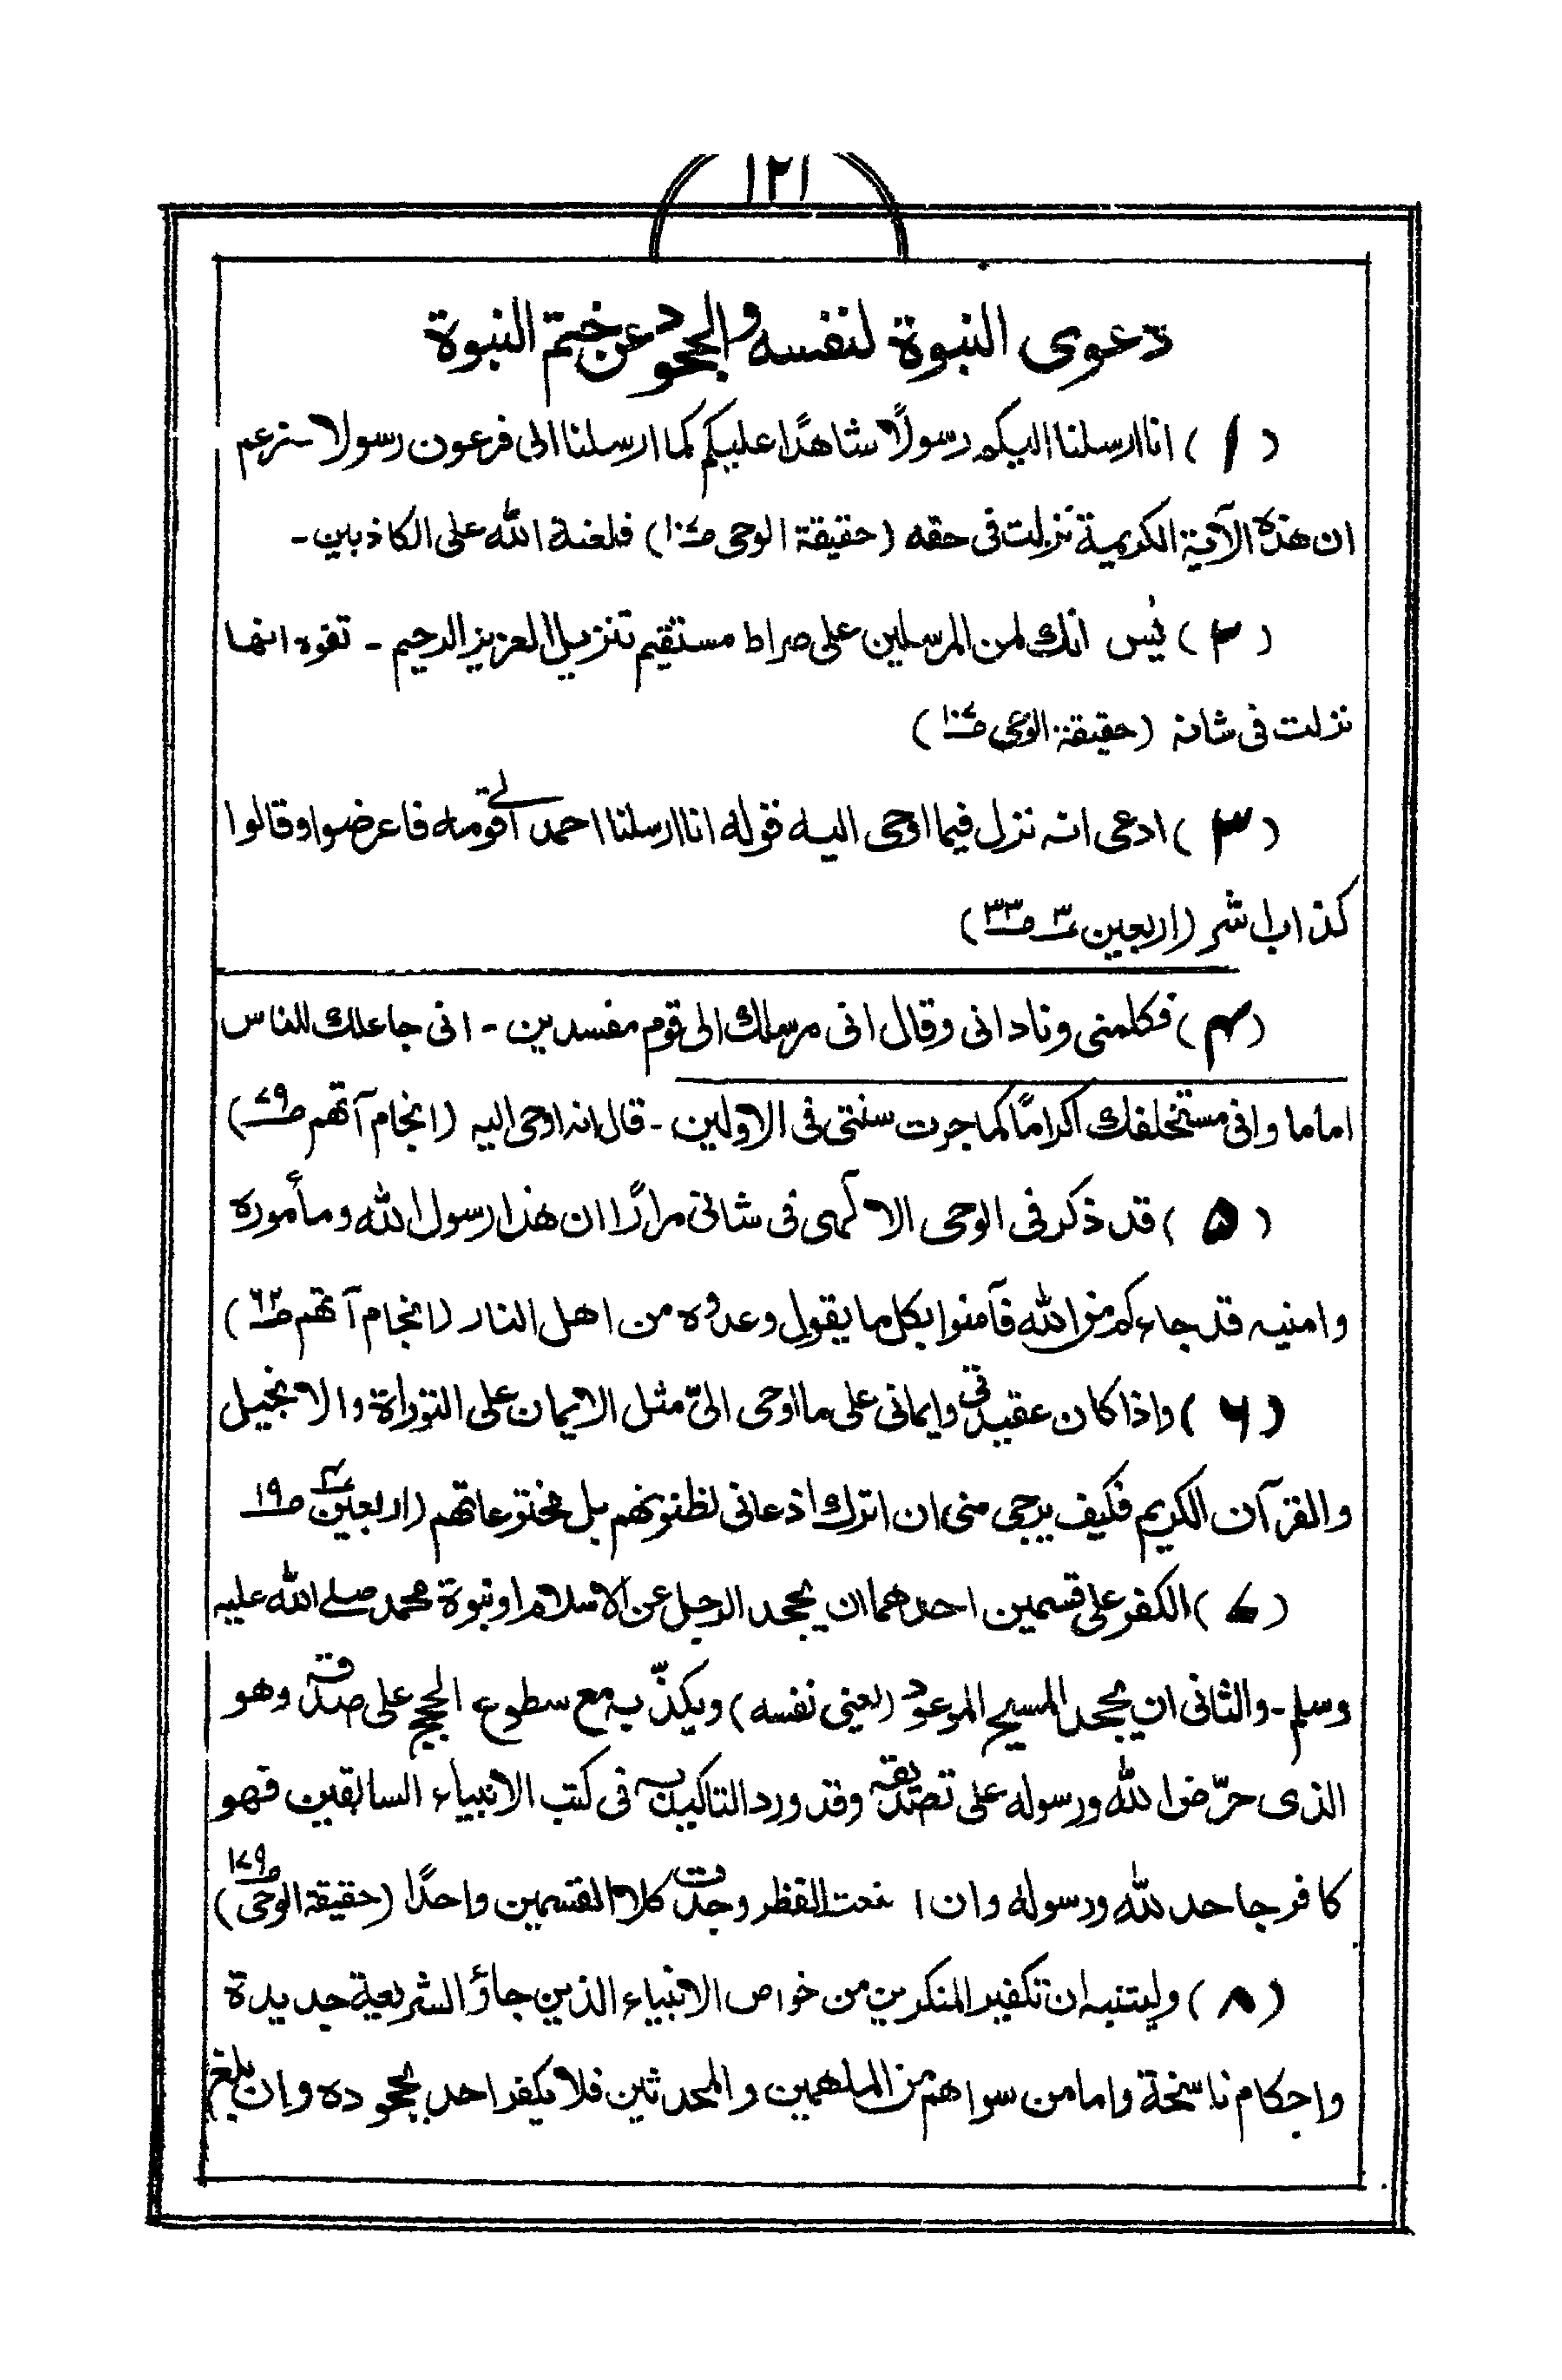 ١٢١
دعوى النبوة لنفسه والجحود عن ختم النبوة
(١) انا ارسلنا اليكم رسولًا شاهدًا عليكم كما ارسلنا الى فرعون رسولا - زعم
ان هذه الآية الكريمة نزلت فى حقه (حقيقة الوحى ص١٠٧) فلعنة الله على الكاذبين -
(٢) يٰس انك لمن المرسلين على صراط مستقيم تنزيل العزيز الرحيم - تفوه انها
نزلت فى شانه (حقيقة الوحى ص١٠٧)
(٣) ادعى انه نزل فيما اوحى اليه قوله انا ارسلنا احمد الى قومه فاعرضوا وقالوا
كذاب اشر (اربعين ٣ ص٣٣)
(٤) فكلمنى ونادانى وقال انى مرسلك الى قوم مفسدين - انى جاعلك للناس
اماما وانى مستخلفك اكرامًا كما جرت سنتى فى الاولين - قال انه اوحى اليه (انجام آتهم ص٧٩)
(٥) قد ذكر فى الوحى الالٰهى فى شانى مرارًا ان هذا رسول الله ومأموره
وامنيه قد جاءكم من الله فآمنوا بكل ما يقول وعدوه من اهل النار (انجام آتهم ص٦٢)
(٦) واذا كان عقيدتى وايمانى على ما اوحى الىّ مثل الايمان على التوراة والانجيل
والقرآن الكريم فكيف يرجى منى ان اترك اذعانى لظنونهم بل مخترعاتهم (اربعين ٤ ص١٩
(٧) الكفر على قسمين احدهما ان يجحد الرجل عن الاسلام او نبوة محمد صلى الله عليه
وسلم - والثانى ان يجحد المسيح الموعود (يعنى نفسه) ويكذّب به مع سطوع الحجج على صدقه وهو
الذى حرّض الله ورسوله على تصديقه وقد ورد التاكيد به فى كتب الانبياء السابقين فهو
كافر جاحد لله ورسوله وان انعمت النظر وجدت كلا القسمين واحدًا (حقيقة الوحى ص١٧٩)
(٨) وليتنبه ان تكفير المنكرين من خواص الانبياء الذين جاؤا لشريعة جديدة
واحكام ناسخة واما من سواهم من الملهمين والمحدثين فلا يكفر احد بجحوده وان بلغ